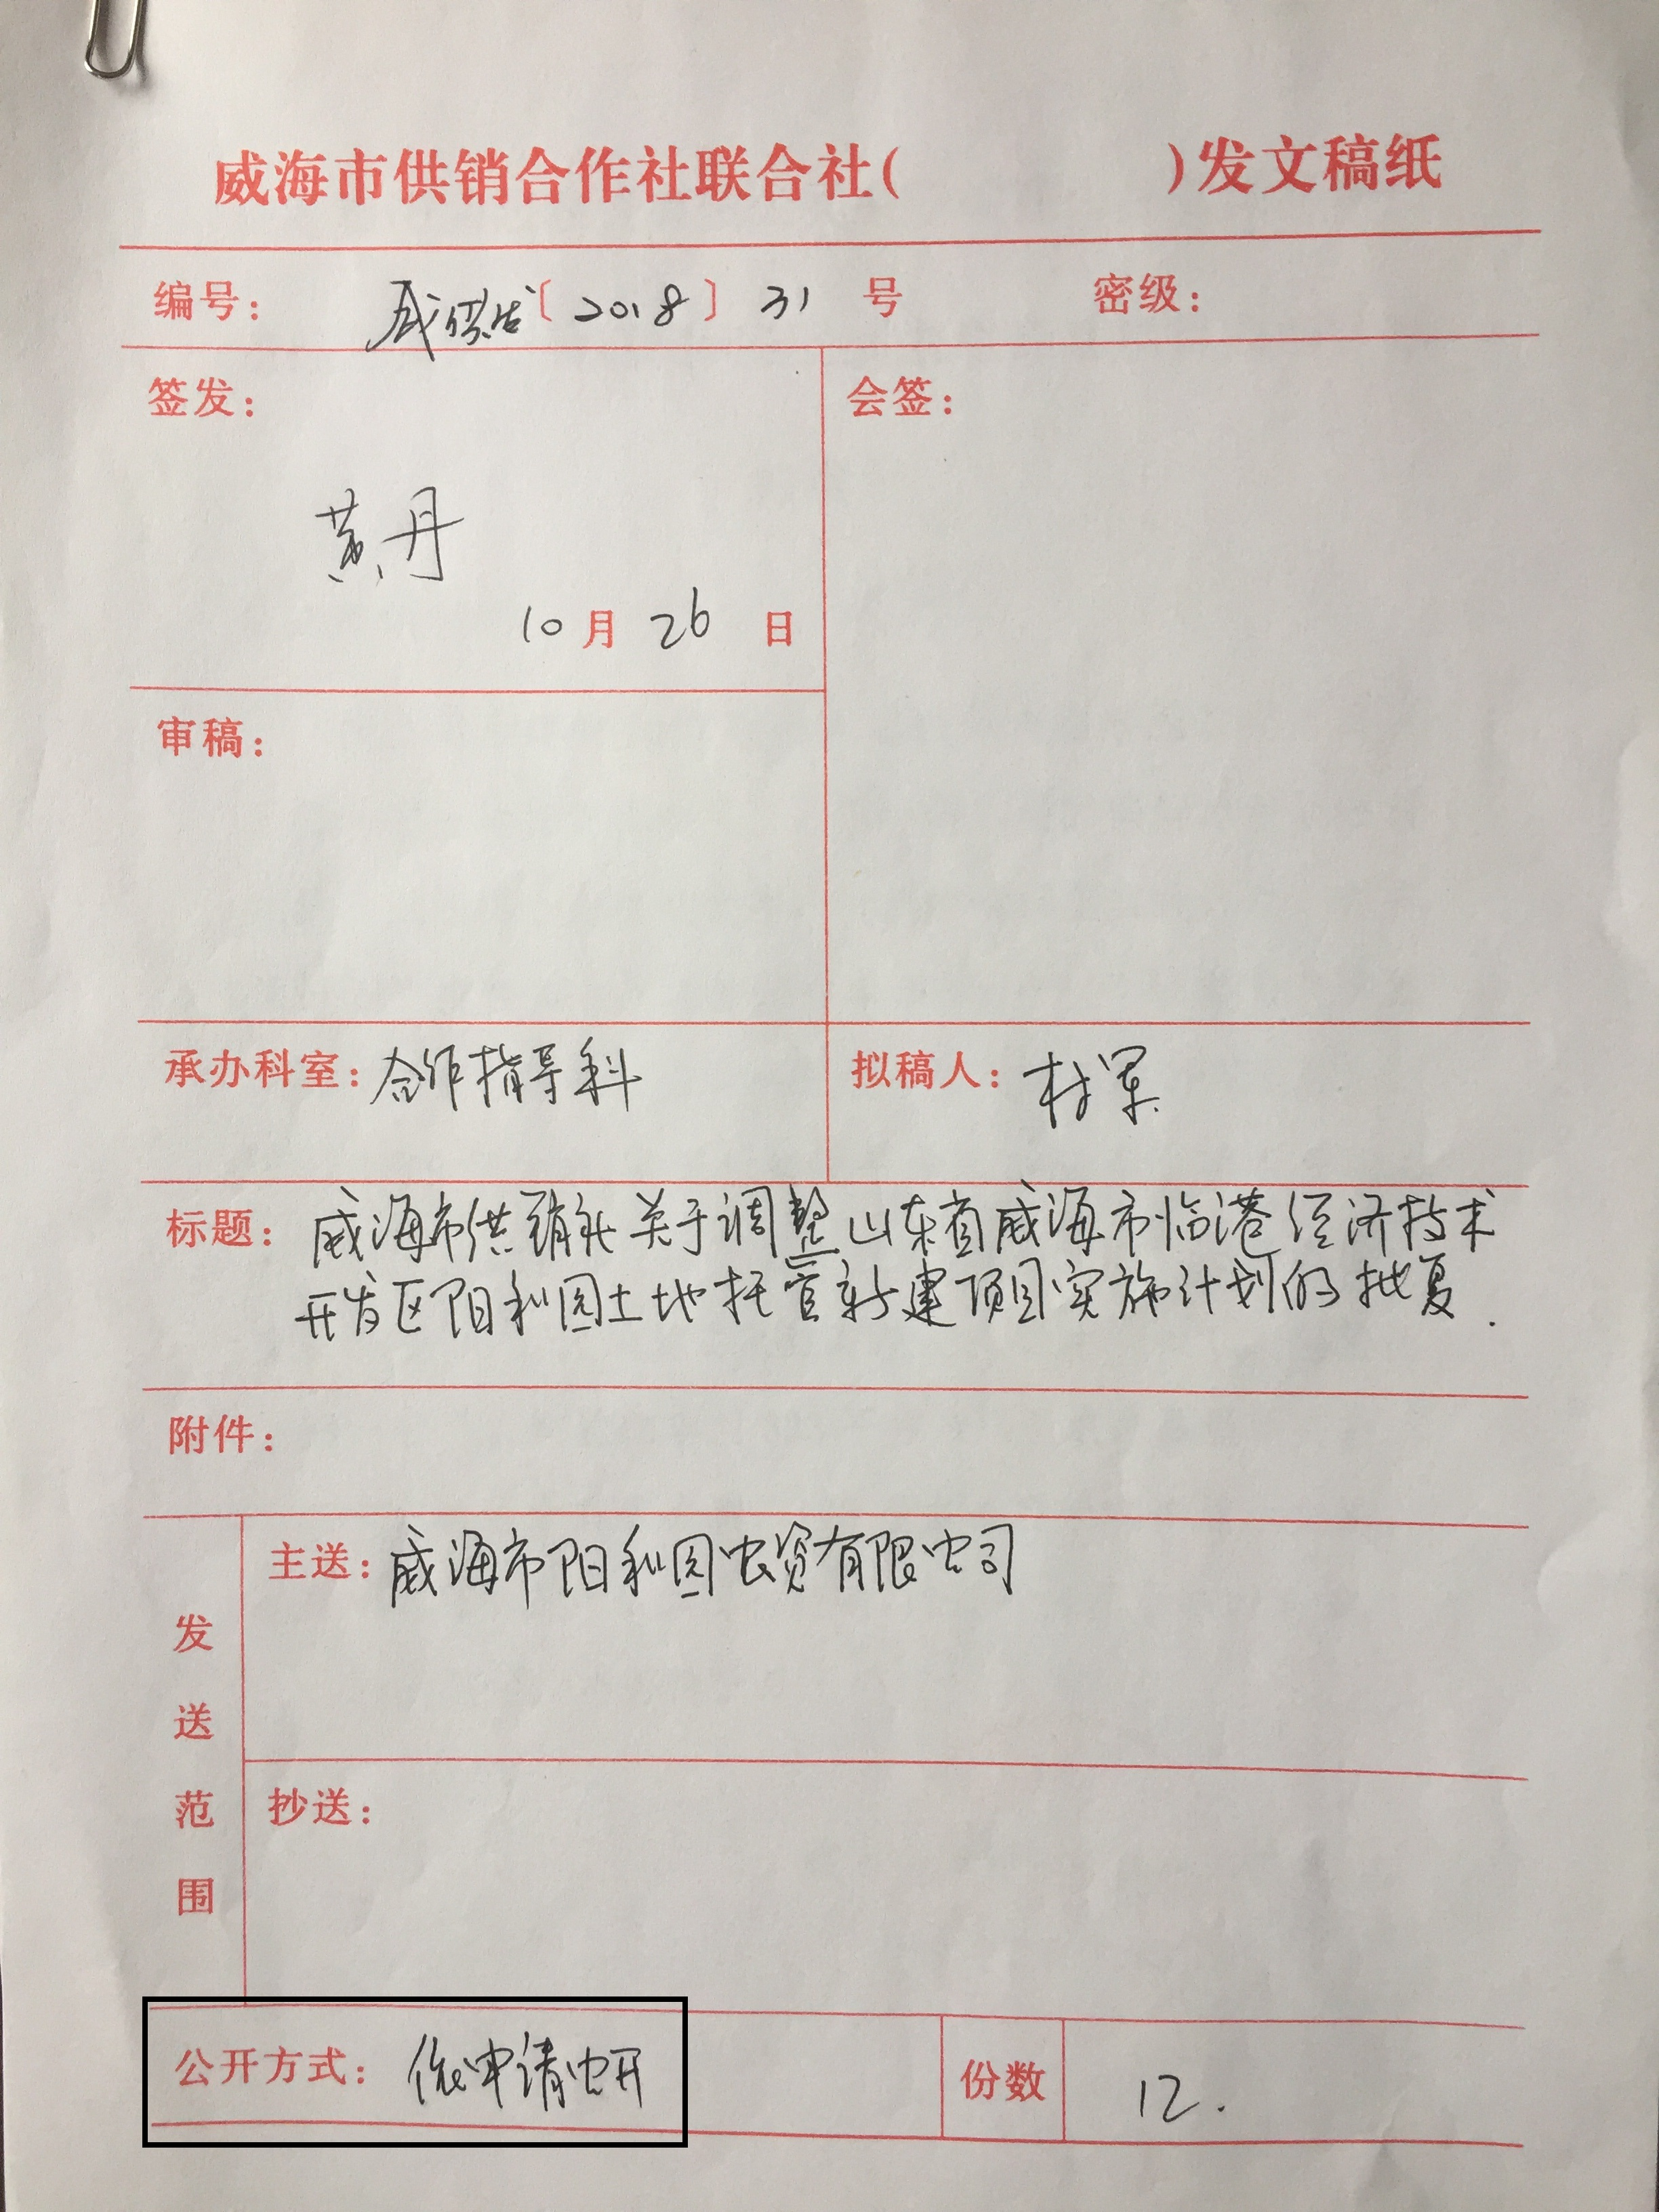 威海市供销合作社联合社( )发文稿纸
编号: 威供发〔2018〕31号 密级:
签发:
会签:
黄丹
10月26日
审稿:
承办科室: 合作指导科
拟稿人:
标题: 威海市供销社关于调整山东省威海市临港经济技术
开发区阳和园土地托管新建项目实施计划的批复.
附件:
发送范围
主送: 威海市阳和园农资有限公司
抄送:
公开方式: 依申请公开
份数 12.